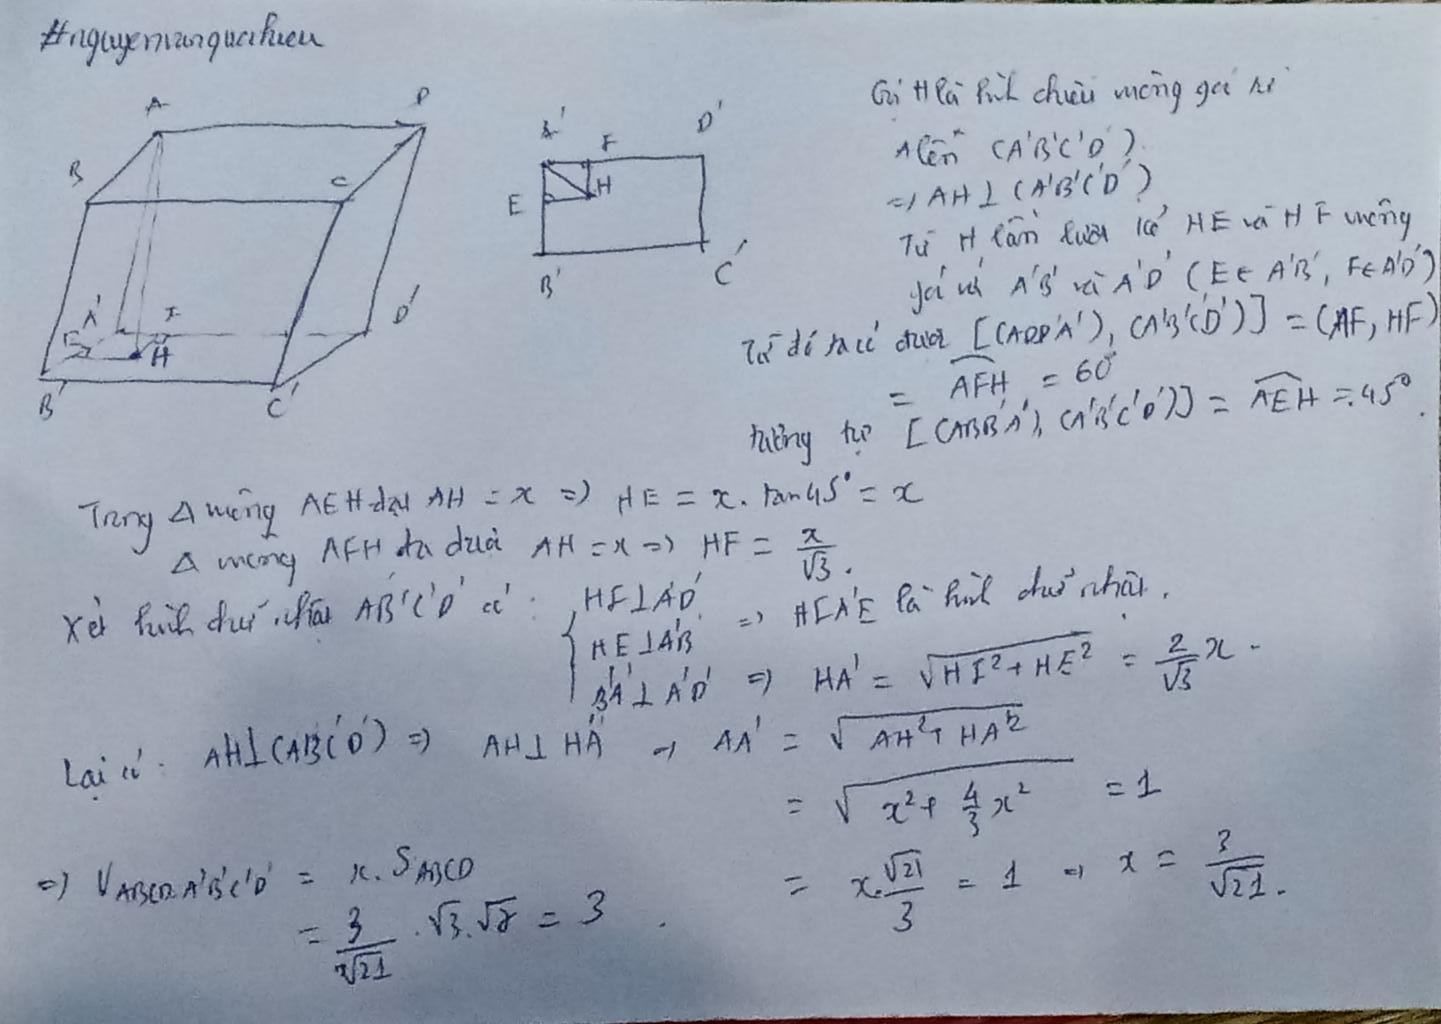 #nguyenvanquanhieu
A
D
B
C
A'
F
E
H
D'
B'
C'
A'
F
D'
E
H
B'
C'
Gọi H là hình chiếu vuông góc kẻ
A lên (A'B'C'D')
=> AH ⊥ (A'B'C'D')
Từ H lần lượt kẻ HE và HF vuông
góc với A'B' và A'D' (E ∈ A'B', F ∈ A'D')
Từ đó ta có được [(ADD'A'), (A'B'C'D')] = (AF, HF)
= AFH = 60°
tương tự [(ABB'A'), (A'B'C'D')] = AEH = 45°.
Trong Δ vuông AEH đặt AH = x => HE = x. tan45° = x
Δ vuông AFH ta được AH = x => HF = x/√3.
Xét hình chữ nhật A'B'C'D' có: { HF ⊥ A'D'
HE ⊥ A'B' => HFA'E là hình chữ nhật.
B'A' ⊥ A'D' => HA' = √HF² + HE² = 2/√3 x.
Lại có: AH ⊥ (A'B'C'D') => AH ⊥ HA' => AA' = √AH² + HA'²
= √x² + 4/3 x² = 1
= x.√21/3 = 1 => x = 3/√21.
=> V ABCD.A'B'C'D' = x. S ABCD
= 3/√21 . √3.√7 = 3.